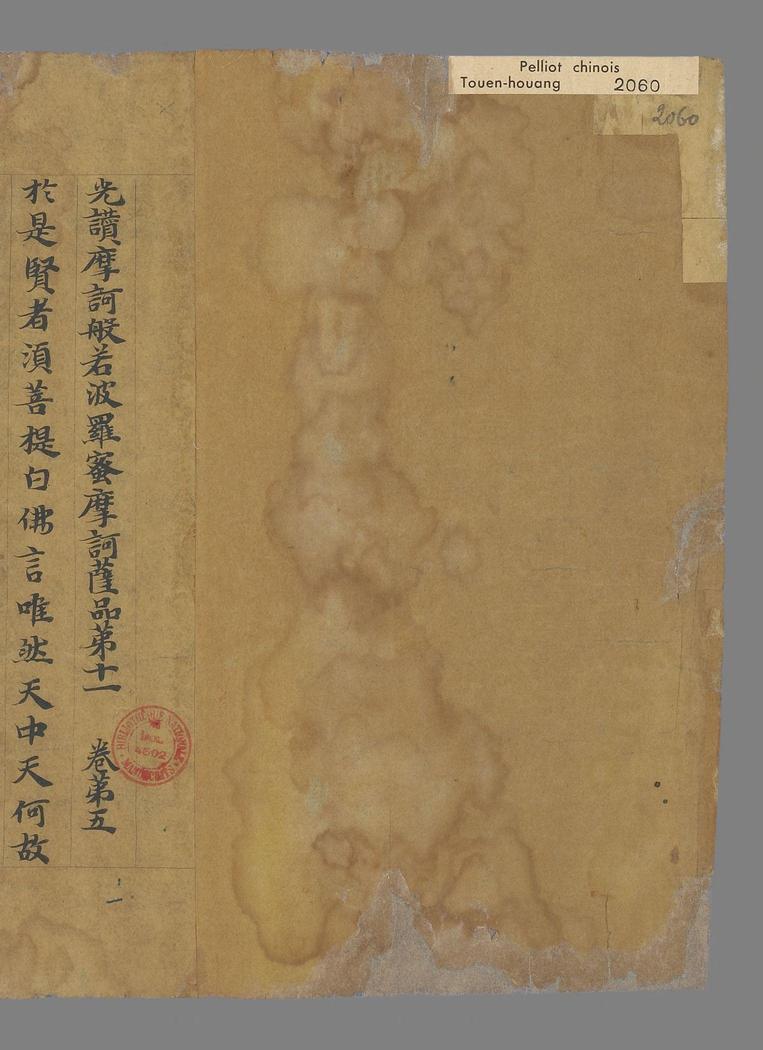 Pelliot chinois
Touen-houang 2060
2060
光讃摩訶般若波羅蜜摩訶薩品第十一 卷第五
於是賢者湏菩提白佛言唯然天中天何故
BIBLIOTHÈQUE NATIONALE
4502
MANUSCRITS